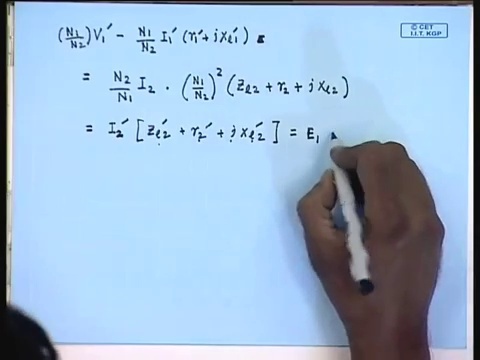 © CET
I.I.T. KGP
(N₁/N₂) V₁′ − N₁/N₂ I₁′ (r₁′ + jxl₁′) =
= N₂/N₁ I₂ · (N₁/N₂)² (Zl₂ + r₂ + j xl₂)
= I₂′ [Zl₂′ + r₂′ + j xl₂′] = E₁